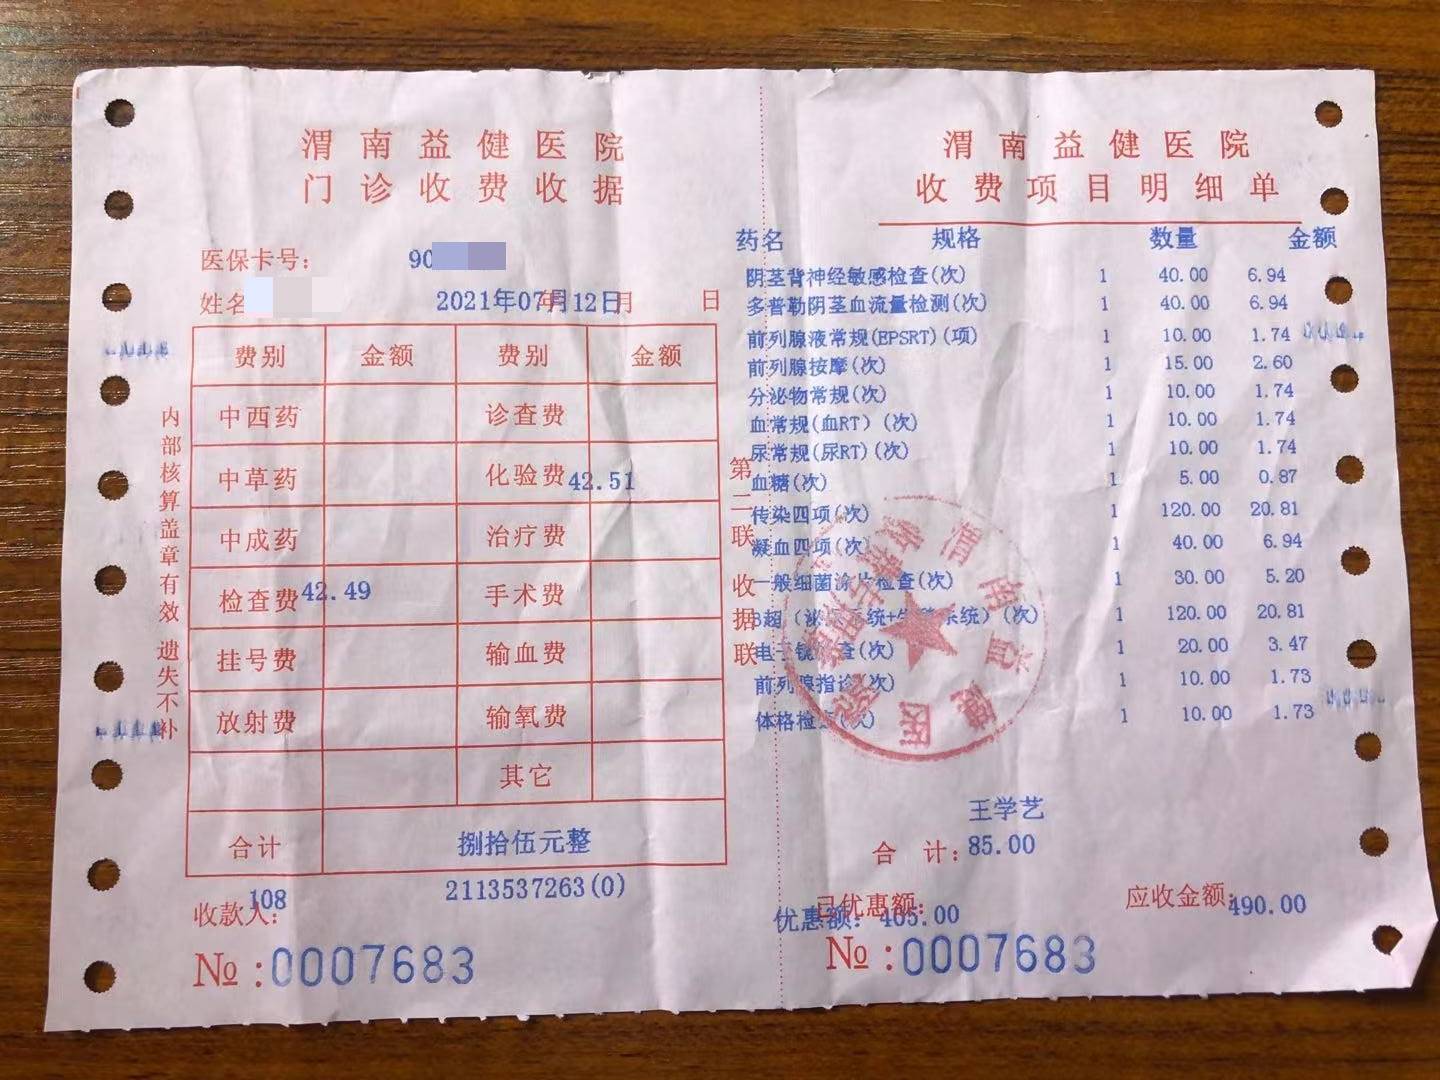 渭南益健医院
门诊收费收据
医保卡号： 90
姓名 2021年07月12日 年 月 日
费别 金额 费别 金额
中西药 诊查费
中草药 化验费 42.51
中成药 治疗费
检查费 42.49 手术费
挂号费 输血费
放射费 输氧费
其它
合计 捌拾伍元整
108 2113537263(0)
收款人：
№：0007683
内部核算盖章有效 遗失不补
第二联 收据联
渭南益健医院
收费项目明细单
药名 规格 数量 金额
阴茎背神经敏感检查(次) 1 40.00 6.94
多普勒阴茎血流量检测(次) 1 40.00 6.94
前列腺液常规(EPSRT)(项) 1 10.00 1.74
前列腺按摩(次) 1 15.00 2.60
分泌物常规(次) 1 10.00 1.74
血常规(血RT）(次) 1 10.00 1.74
尿常规(尿RT)(次) 1 10.00 1.74
血糖(次) 1 5.00 0.87
传染四项(次) 1 120.00 20.81
凝血四项(次) 1 40.00 6.94
一般细菌涂片检查(次) 1 30.00 5.20
B超（泌尿系统+生殖系统）(次) 1 120.00 20.81
电子镜检查(次) 1 20.00 3.47
前列腺指诊(次) 1 10.00 1.73
体格检查(次) 1 10.00 1.73
渭南益健医院
王学艺
合 计：85.00
已优惠额： 优惠额：405.00 应收金额：490.00
№：0007683